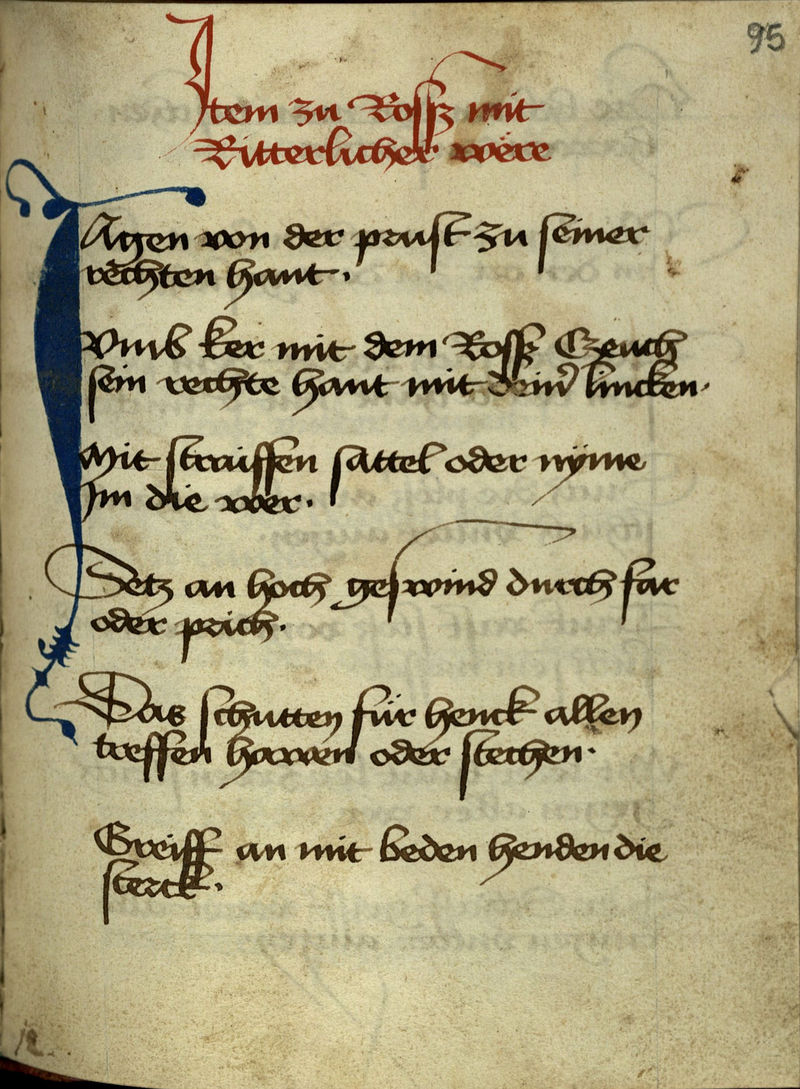 95
Item zu Rossz mit
Ritterlicher were
Iagen von der prust zu seiner
rechten hant.
Vmb ker mit dem Rossz Czeuch
sein rechte hant mit dein̄ lincken.
Mit straiffen sattel oder nÿme
Im die wer.
Setz an hoch geswind durch far
oder prich.
Das schutten für henck allen
treffen hawen oder stechen.
Greiff an mit beden henden die
sterck.